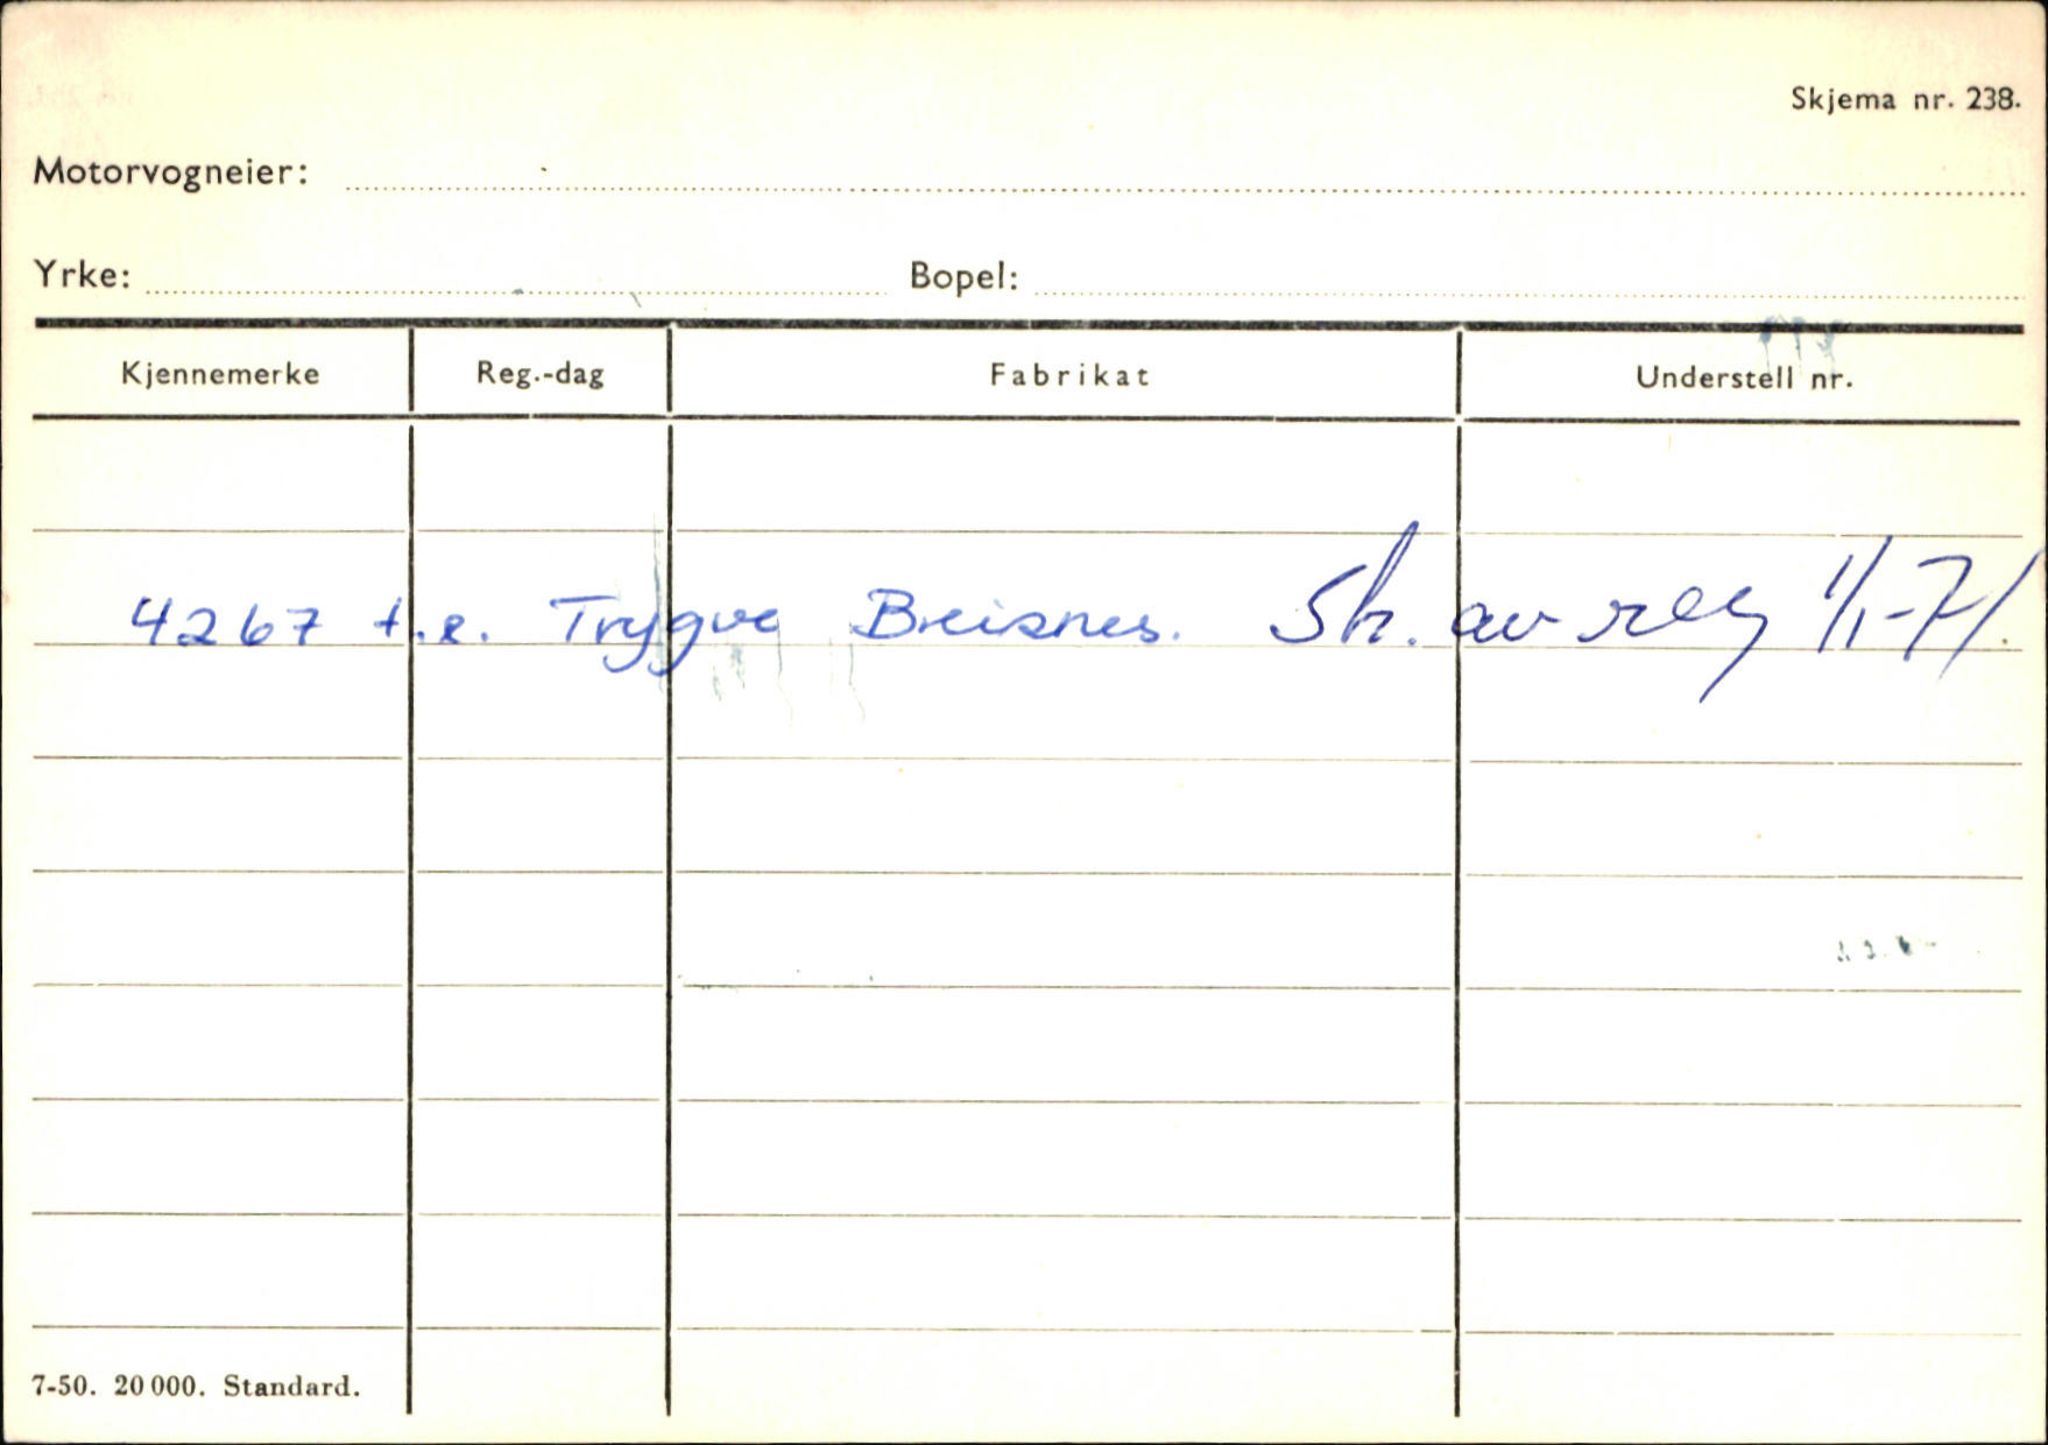 Skjema nr. 238.
Motorvogneier:
Yrke: Bopel:
Kjennemerke Reg.-dag Fabrikat Understell nr.
4267 t.e. Trygve Breisnes. Str. av reg 1/1-71.
7-50. 20 000. Standard.